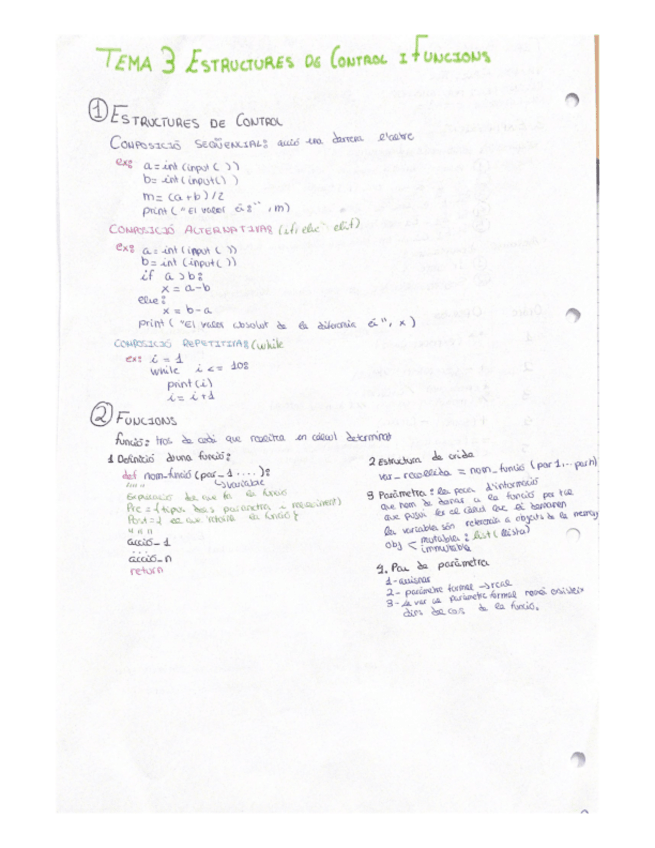 TEMA 3 ESTRUCTURES DE CONTROL I FUNCIONS
1 ESTRUCTURES DE CONTROL
COMPOSICIÓ SEQÜENCIAL: acció una darrera l'altre
ex: a = int (input ( ))
b = int (input ( ))
m = (a+b)/2
print ( "El valor és" , m)
COMPOSICIÓ ALTERNATIVA (if, else elif)
ex: a = int (input ( ))
b = int (input ( ))
if a > b:
x = a-b
else:
x = b-a
print ( "El valor absolut de la diferencia és", x )
COMPOSICIÓ REPETITIVA (while
ex: i = 1
while i <= 10:
print (i)
i = i+1
2 FUNCIONS
funció: tros de codi que un càlcul determinat
1 Definició d'una funció:
def nom_funció (par_1 ....):
variable
"""
Explicació de que fa la funció
Pre = { tipus dels paràmetres i }
Post = { el que retorna la funció }
"""
acció_1
...
acció_n
return
2 Estructura de crida
var_recollida = nom_funció (par1... parn)
3 Paràmetre: la peça d'informació
que hem de donar a la funció per tal
que pugui fer el càlcul que li demanem
les variables són referencia a objects de la memory
obj < mutables: list (llista)
immutable
4. Pas de paràmetre
1 - assignar
2 - paràmetre formal → real
3 - la var del paràmetre formal només existeix
dins del cos de la funció.